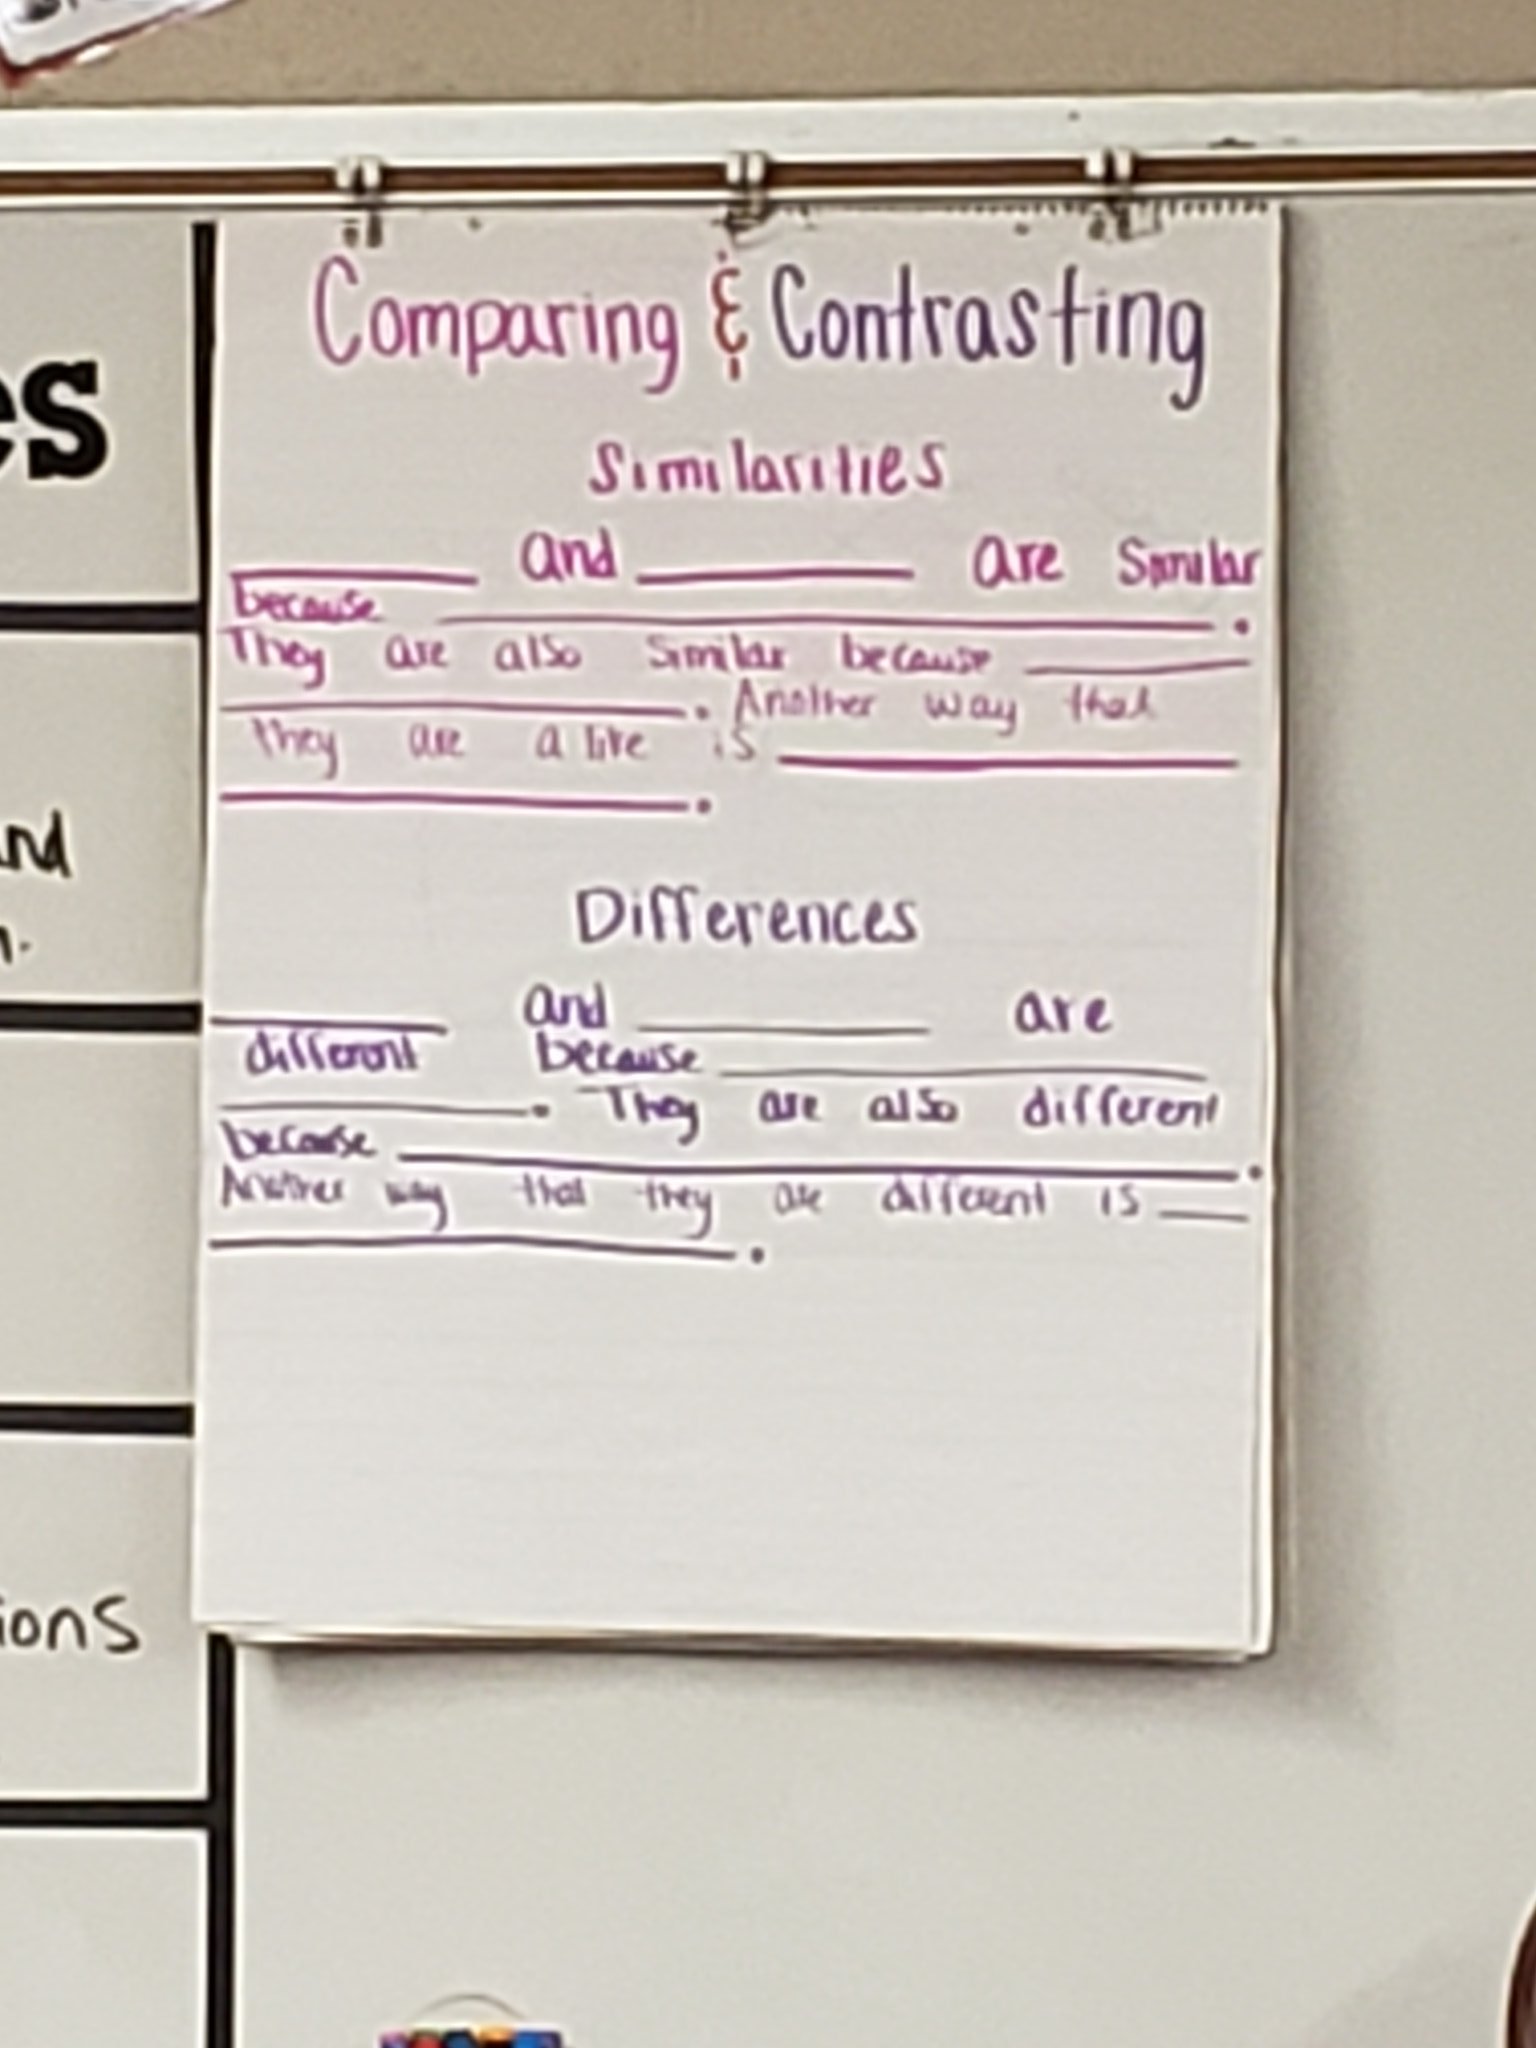 es
nd
n.
ions
Comparing & Contrasting
Similarities
________ and ________ are similar
because ________________.
They are also similar because ______
____________. Another way that
they are alike is ____________
____________.
Differences
________ and ________ are
different because ____________
________. They are also different
because ____________________.
Another way that they are different is ___
____________.